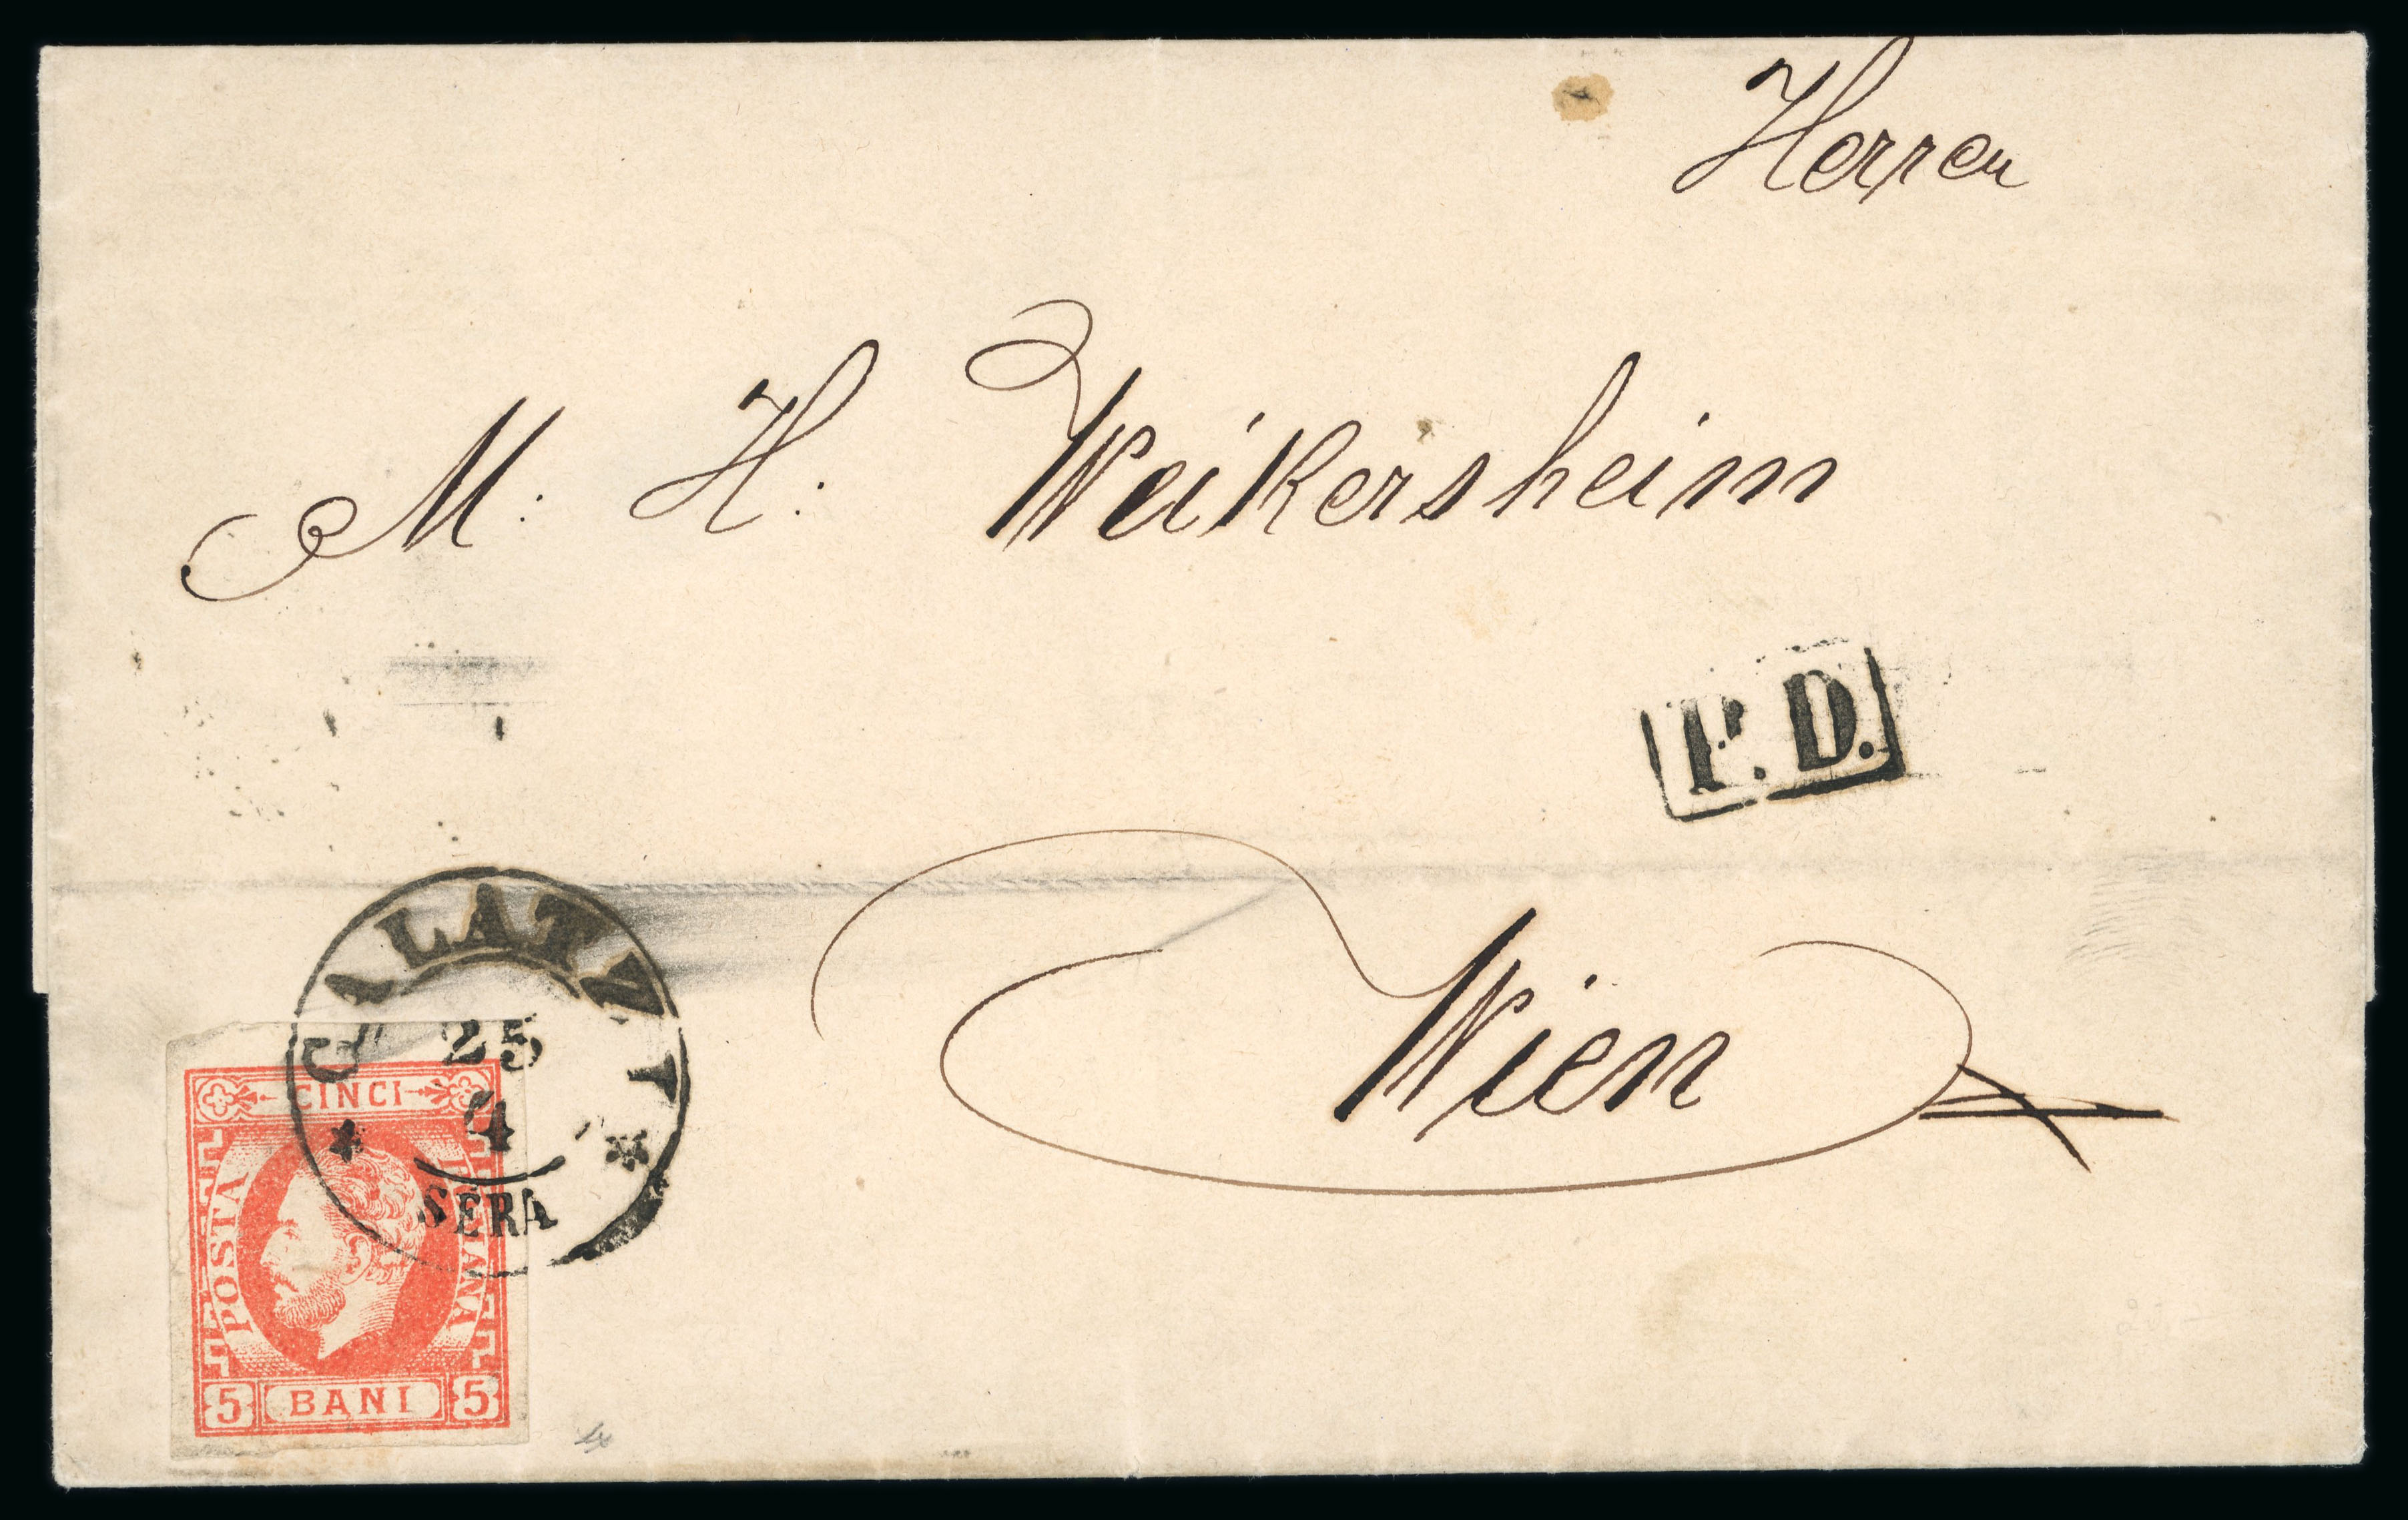 Herren
M. H. Weikersheim
P. D.
Wien
GALATZ I
25
4
SERA
CINCI
POSTA
ROMANA
5 BANI 5